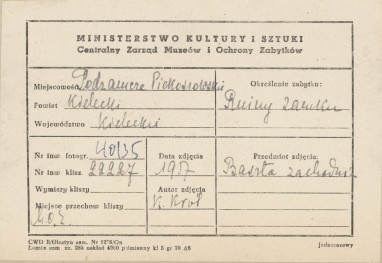 MINISTERSTWO KULTURY I SZTUKI
Centralny Zarząd Muzeów i Ochrony Zabytków
Miejscowość Podzamcze Piekoszowskie
Powiat Kielecki
Województwo Kieleckie
Określenie zabytku:
Ruiny zamku
Nr inw. fotogr. 40135
Nr inw. klisz. 29227
Wymiary kliszy
Miejsce przechow. kliszy
Data zdjęcia
1957
Autor zdjęcia
K. Król
Przedmiot zdjęcia:
Baszta zachodnia
CWD R/Olsztyn zam. Nr
jednorazowy